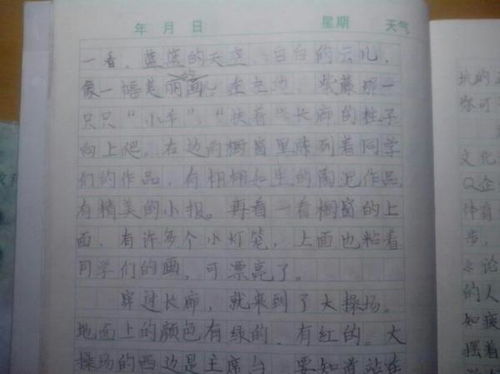 年 月 日 星期 天气
一看，蓝蓝的天空、白白的云儿，
像一幅美丽画。左边，紫藤那一
只只“小手”，“扶着”长廊的柱子
向上爬，右边的橱窗里陈列着同学
们的作品，有栩栩如生的陶泥作品，
有精美的小报。再看一看橱窗的上
面，有许多个小灯笼，上面也粘着
同学们的画，可漂亮了。
穿过长廊，就来到了大操场。
地面上的颜色有绿的，有红的。大
操场的西边是主席台，要知道站在
文化
企
的人